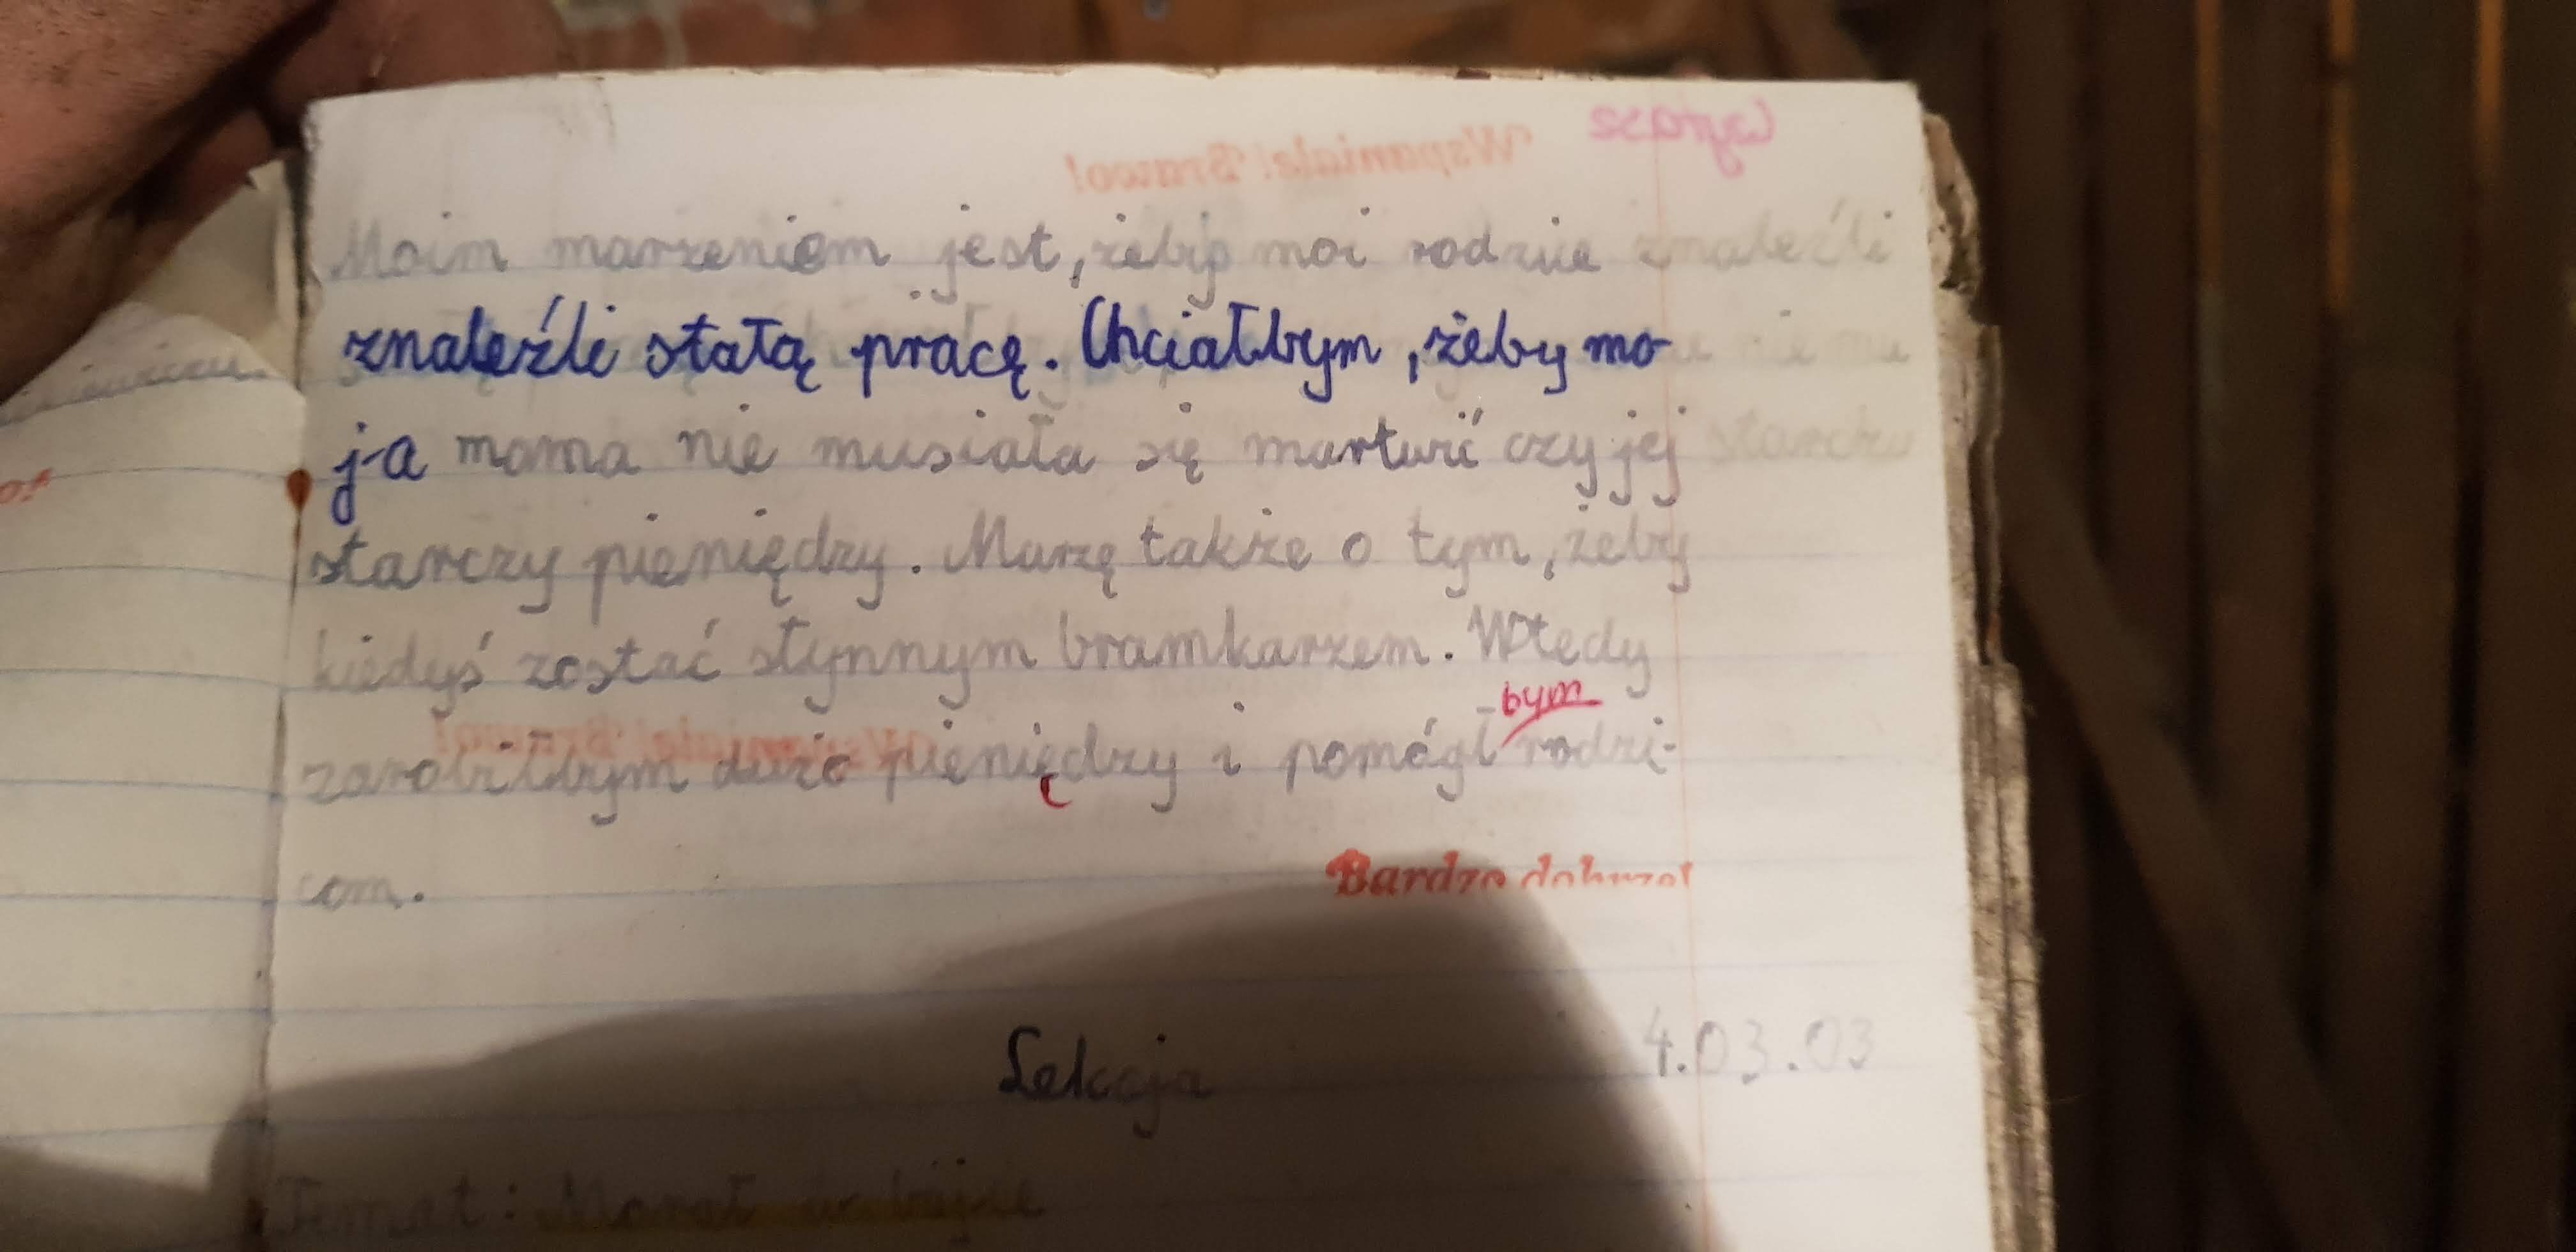 Wspaniale! Brawo!
Moim marzeniem jest, żeby moi rodzice znaleźli
znaleźli stałą pracę. Chciałbym, żeby mo
ja mama nie musiała się martwić czy jej starczy
starczy pieniędzy. Marzę także o tym, żeby
kiedyś zostać słynnym bramkarzem. Wtedy
bym
zarobiłbym dużo pieniędzy i pomógł rodzi-
com.
Bardzo dobrze!
Lekcja 4.03.03
Temat: Morał w bajce